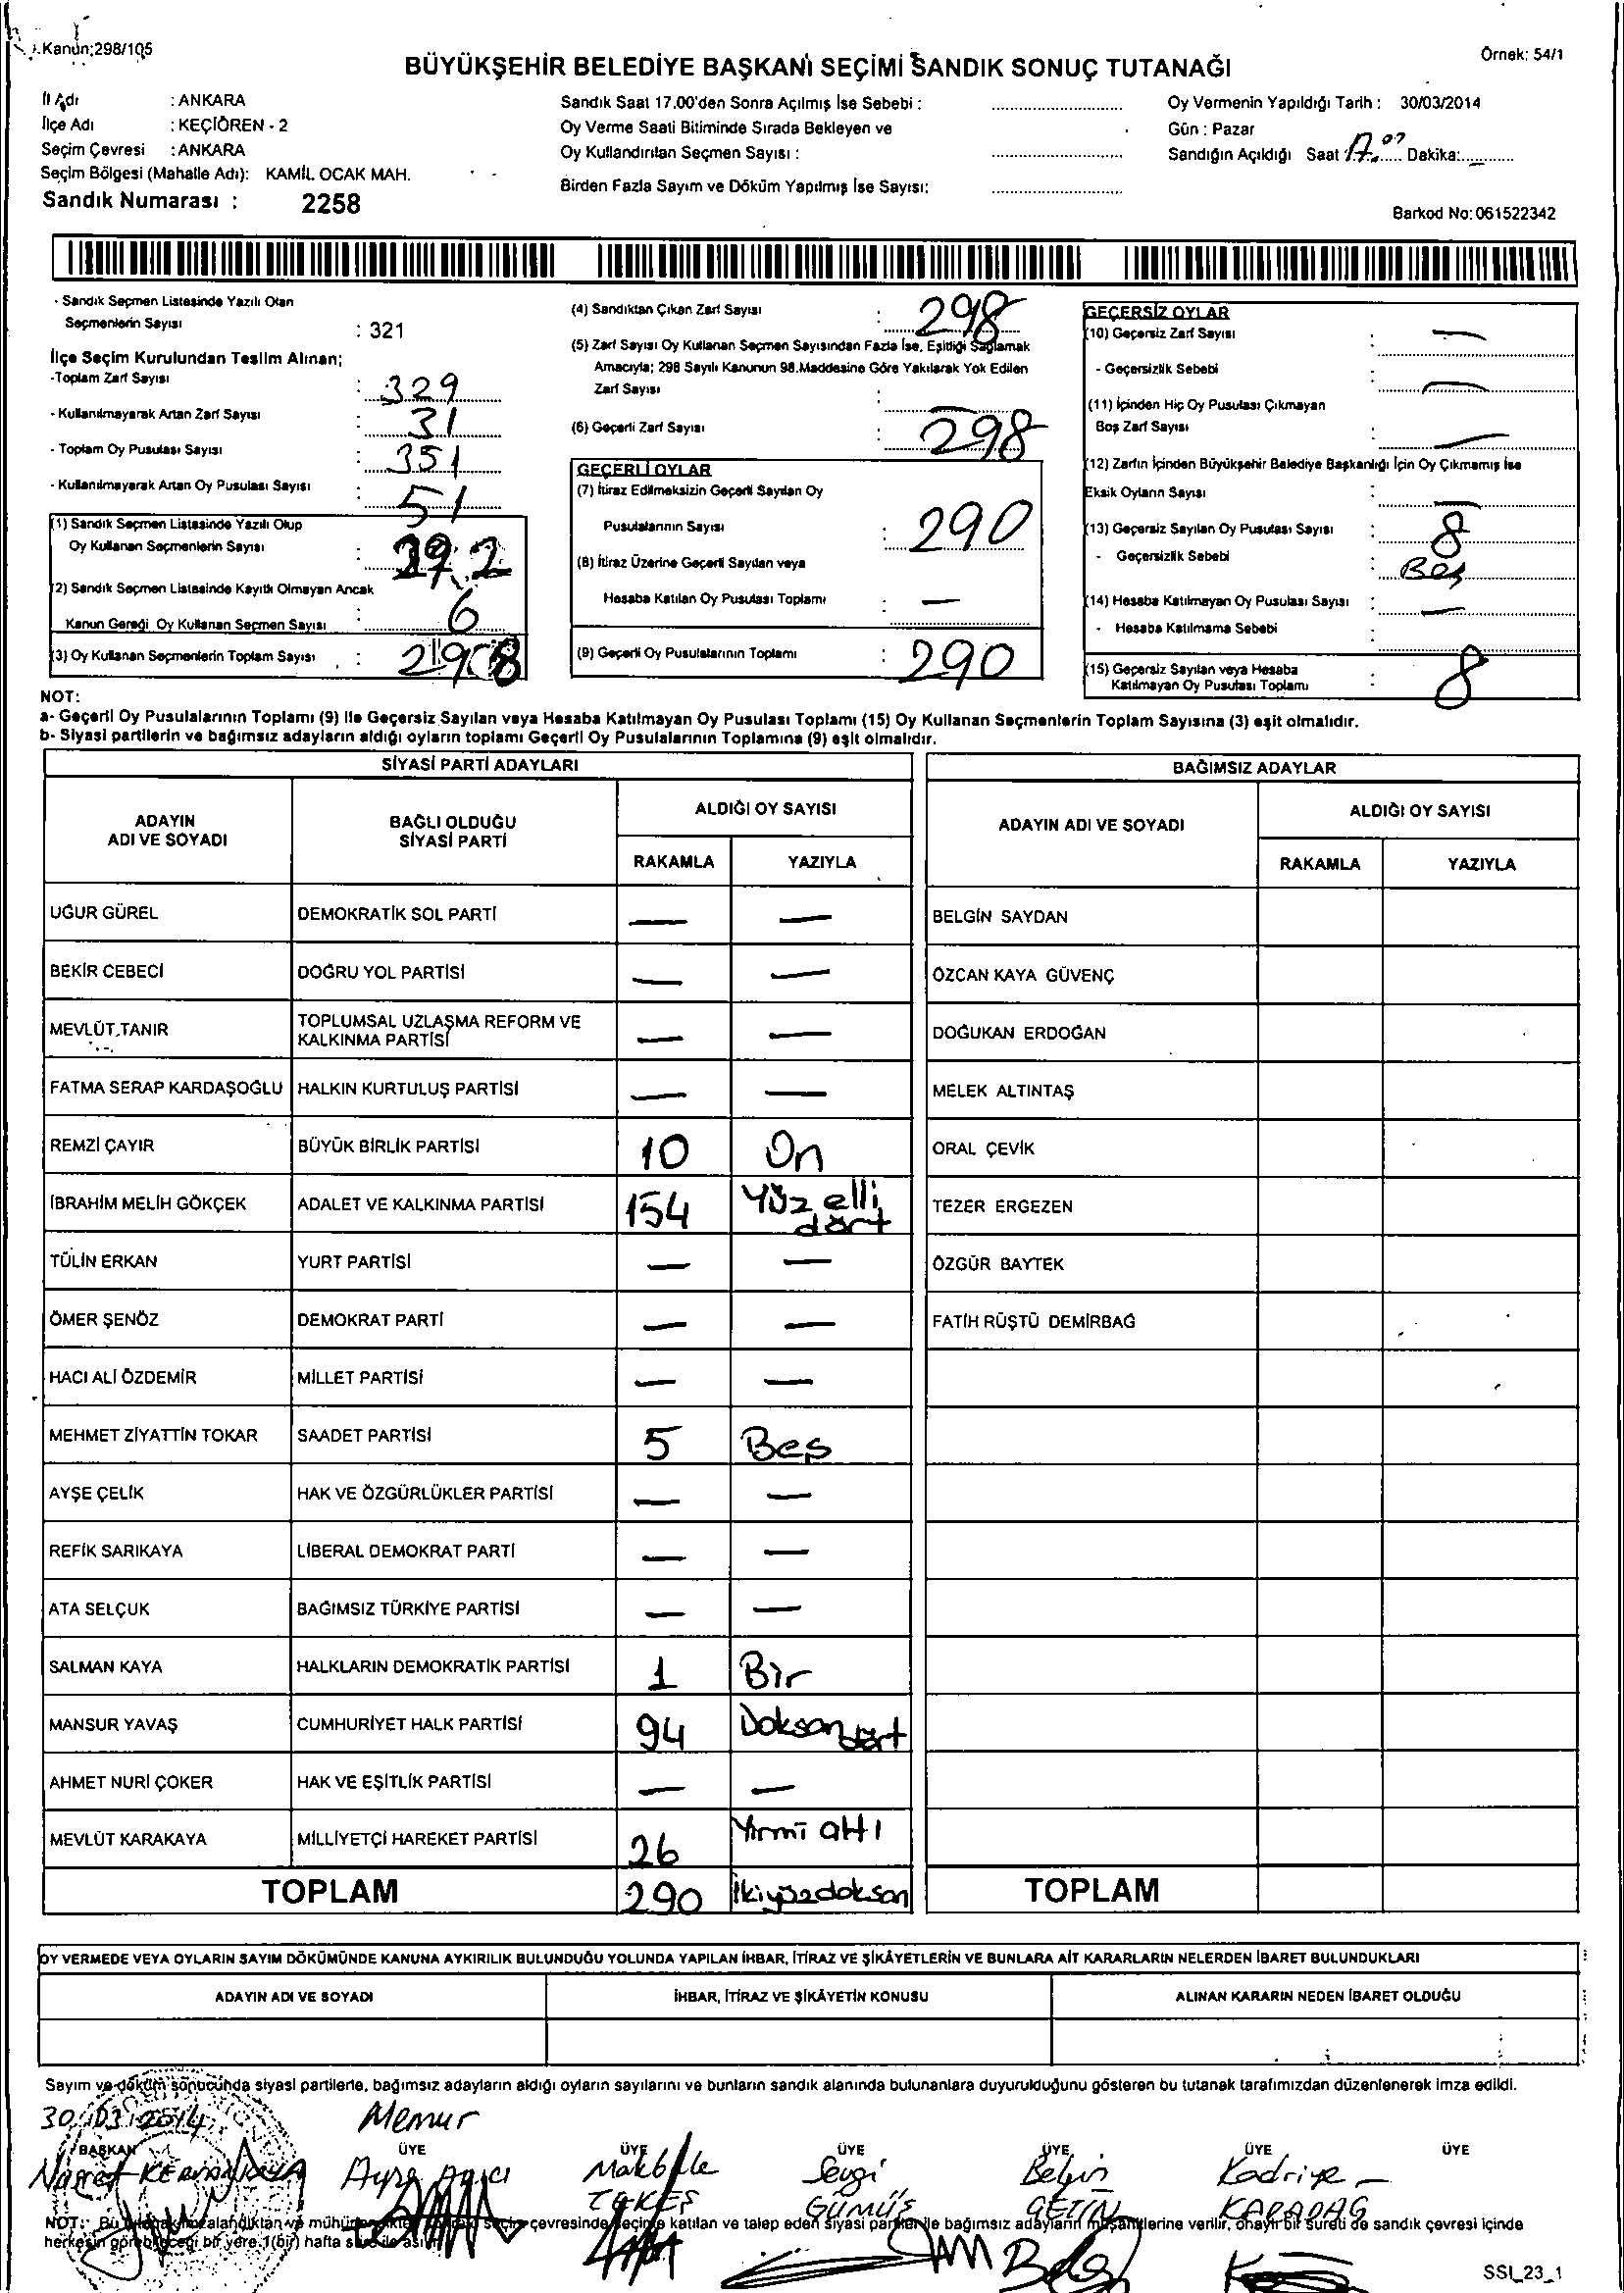 Kanun;298/105
Örnek: 54/1
BÜYÜKŞEHİR BELEDİYE BAŞKANI SEÇİMİ SANDIK SONUÇ TUTANAĞI
İl Adı : ANKARA
İlçe Adı : KEÇİÖREN - 2
Seçim Çevresi : ANKARA
Seçim Bölgesi (Mahalle Adı): KAMİL OCAK MAH.
Sandık Numarası : 2258
Sandık Saat 17.00'den Sonra Açılmış İse Sebebi :
Oy Verme Saati Bitiminde Sırada Bekleyen ve
Oy Kullandırılan Seçmen Sayısı :
Birden Fazla Sayım ve Döküm Yapılmış İse Sayısı:
Oy Vermenin Yapıldığı Tarih : 30/03/2014
Gün : Pazar
Sandığın Açıldığı Saat 17.00 Dakika:
Barkod No: 061522342
- Sandık Seçmen Listesinde Yazılı Olan
Seçmenlerin Sayısı : 321
İlçe Seçim Kurulundan Teslim Alınan;
-Toplam Zarf Sayısı : 329
- Kullanılmayarak Artan Zarf Sayısı : 31
- Toplam Oy Pusulası Sayısı : 351
- Kullanılmayarak Artan Oy Pusulası Sayısı : 51
(1) Sandık Seçmen Listesinde Yazılı Olup
Oy Kullanan Seçmenlerin Sayısı : 292
(2) Sandık Seçmen Listesinde Kayıtlı Olmayan Ancak
Kanun Gereği Oy Kullanan Seçmen Sayısı : 6
(3) Oy Kullanan Seçmenlerin Toplam Sayısı : 298
(4) Sandıktan Çıkan Zarf Sayısı : 298
(5) Zarf Sayısı Oy Kullanan Seçmen Sayısından Fazla İse, Eşitliği Sağlamak
Amacıyla; 298 Sayılı Kanunun 98.Maddesine Göre Yakılarak Yok Edilen
Zarf Sayısı : —
(6) Geçerli Zarf Sayısı : 298
GEÇERLİ OYLAR
(7) İtiraz Edilmeksizin Geçerli Sayılan Oy
Pusulalarının Sayısı : 290
(8) İtiraz Üzerine Geçerli Sayılan veya
Hesaba Katılan Oy Pusulası Toplamı : —
(9) Geçerli Oy Pusulalarının Toplamı : 290
GEÇERSİZ OYLAR
(10) Geçersiz Zarf Sayısı : —
- Geçersizlik Sebebi : —
(11) İçinden Hiç Oy Pusulası Çıkmayan
Boş Zarf Sayısı : —
(12) Zarfın İçinden Büyükşehir Belediye Başkanlığı İçin Oy Çıkmamış İse
Eksik Oyların Sayısı : —
(13) Geçersiz Sayılan Oy Pusulası Sayısı : 8
- Geçersizlik Sebebi : Beş
(14) Hesaba Katılmayan Oy Pusulası Sayısı : —
- Hesaba Katılmama Sebebi :
(15) Geçersiz Sayılan veya Hesaba
Katılmayan Oy Pusulası Toplamı : 8
NOT:
a- Geçerli Oy Pusulalarının Toplamı (9) İle Geçersiz Sayılan veya Hesaba Katılmayan Oy Pusulası Toplamı (15) Oy Kullanan Seçmenlerin Toplam Sayısına (3) eşit olmalıdır.
b- Siyasi partilerin ve bağımsız adayların aldığı oyların toplamı Geçerli Oy Pusulalarının Toplamına (9) eşit olmalıdır.
SİYASİ PARTİ ADAYLARI
ADAYIN ADI VE SOYADI
BAĞLI OLDUĞU SİYASİ PARTİ
ALDIĞI OY SAYISI
RAKAMLA YAZIYLA
UĞUR GÜREL DEMOKRATİK SOL PARTİ — —
BEKİR CEBECİ DOĞRU YOL PARTİSİ — —
MEVLÜT TANIR TOPLUMSAL UZLAŞMA REFORM VE KALKINMA PARTİSİ — —
FATMA SERAP KARDAŞOĞLU HALKIN KURTULUŞ PARTİSİ — —
REMZİ ÇAYIR BÜYÜK BİRLİK PARTİSİ 10 On
İBRAHİM MELİH GÖKÇEK ADALET VE KALKINMA PARTİSİ 154 Yüz elli dört
TÜLİN ERKAN YURT PARTİSİ — —
ÖMER ŞENÖZ DEMOKRAT PARTİ — —
HACI ALİ ÖZDEMİR MİLLET PARTİSİ — —
MEHMET ZİYATTİN TOKAR SAADET PARTİSİ 5 Beş
AYŞE ÇELİK HAK VE ÖZGÜRLÜKLER PARTİSİ — —
REFİK SARIKAYA LİBERAL DEMOKRAT PARTİ — —
ATA SELÇUK BAĞIMSIZ TÜRKİYE PARTİSİ — —
SALMAN KAYA HALKLARIN DEMOKRATİK PARTİSİ 1 Bir
MANSUR YAVAŞ CUMHURİYET HALK PARTİSİ 94 Doksan dört
AHMET NURİ ÇOKER HAK VE EŞİTLİK PARTİSİ — —
MEVLÜT KARAKAYA MİLLİYETÇİ HAREKET PARTİSİ 26 Yirmi altı
TOPLAM 290 İkiyüzdoksan
BAĞIMSIZ ADAYLAR
ADAYIN ADI VE SOYADI
ALDIĞI OY SAYISI
RAKAMLA YAZIYLA
BELGİN SAYDAN
ÖZCAN KAYA GÜVENÇ
DOĞUKAN ERDOĞAN
MELEK ALTINTAŞ
ORAL ÇEVİK
TEZER ERGEZEN
ÖZGÜR BAYTEK
FATİH RÜŞTÜ DEMİRBAĞ
TOPLAM
OY VERMEDE VEYA OYLARIN SAYIM DÖKÜMÜNDE KANUNA AYKIRILIK BULUNDUĞU YOLUNDA YAPILAN İHBAR, İTİRAZ VE ŞİKÂYETLERİN VE BUNLARA AİT KARARLARIN NELERDEN İBARET BULUNDUKLARI
ADAYIN ADI VE SOYADI İHBAR, İTİRAZ VE ŞİKÂYETİN KONUSU ALINAN KARARIN NEDEN İBARET OLDUĞU
Sayım ve döküm sonucunda siyasi partilerle, bağımsız adayların aldığı oyların sayılarını ve bunların sandık alanında bulunanlara duyurulduğunu gösteren bu tutanak tarafımızdan düzenlenerek imza edildi.
30/03/2014 Memur
BAŞKAN ÜYE ÜYE ÜYE ÜYE ÜYE ÜYE
Ayşe Makbule Sevgi Belgin Kadriye
GÜMÜŞ ÇETİN KARADAĞ
NOT: Bu tutanak imzalandıktan ve mühürlendikten sonra seçim çevresinde seçime katılan ve talep eden siyasi partiler ile bağımsız adayların müşahitlerine verilir, onaylı bir sureti de sandık çevresi içinde
herkesin görebileceği bir yere 1(bir) hafta süre ile asılır.
SSI_23_1